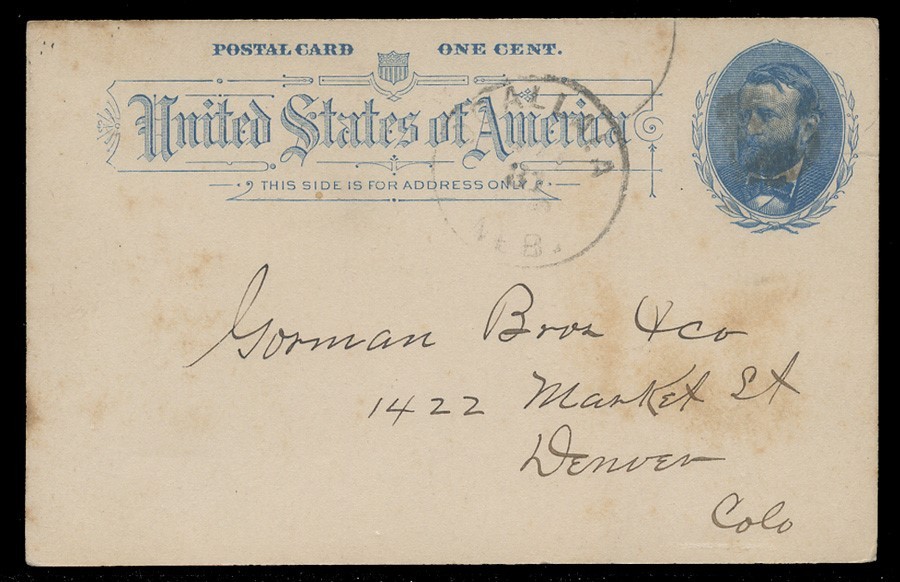 POSTAL CARD ONE CENT.
United States of America
THIS SIDE IS FOR ADDRESS ONLY
Gorman Bros & co
1422 Market St
Denver
Colo